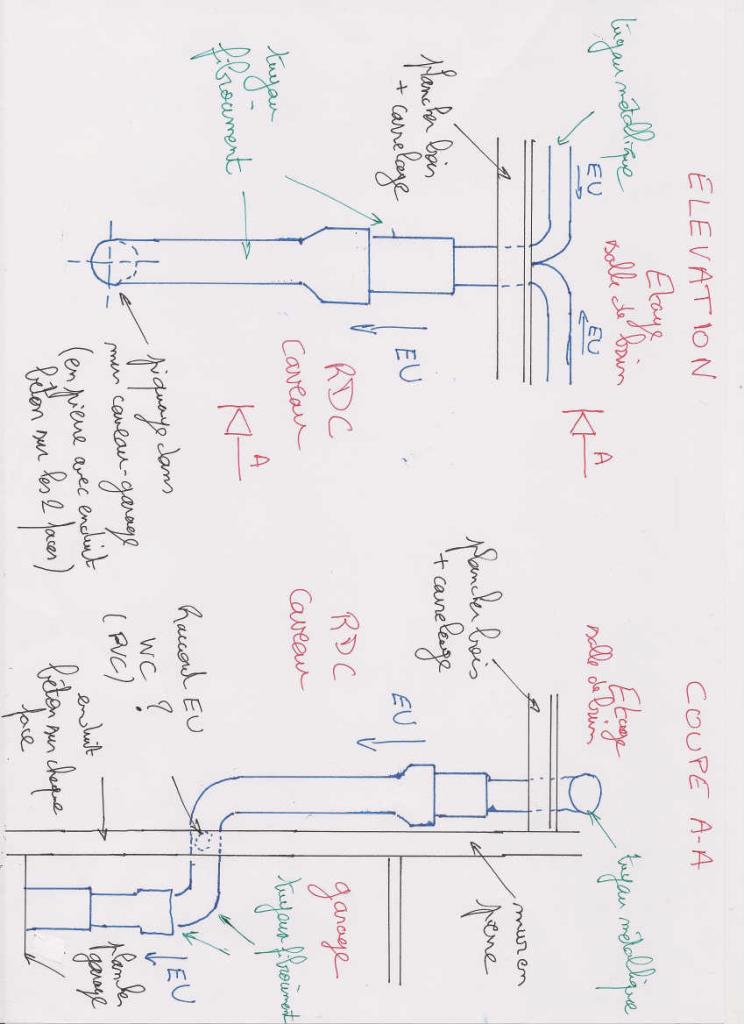 ELEVATION
tuyau métallique
EU
Etage
salle de bain
EU
plancher bois
+ carrelage
tuyau
fibrociment
EU
RDC
Caveau
A
A
piquage dans
mur caveau-garage
(en pierre avec enduit
béton sur les 2 faces)
COUPE A-A
Etage
salle de bain
tuyau métallique
plancher bois
+ carrelage
EU
RDC
Caveau
mur en
pierre
Raccord EU
WC ?
(PVC)
garage
tuyaux fibrociment
enduit
béton sur chaque
face
EU
garage